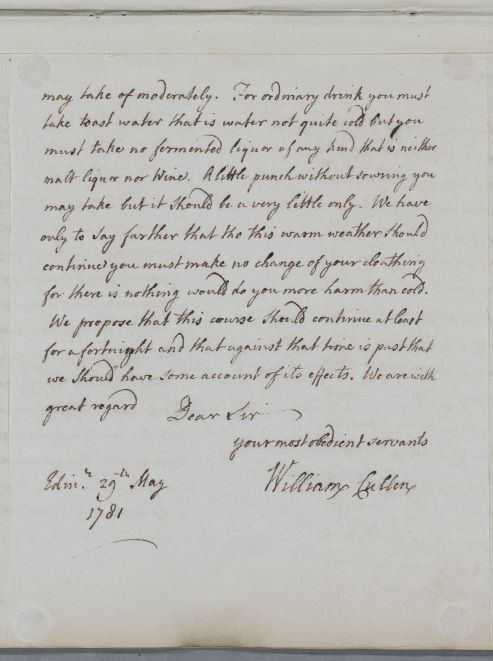 may take of moderately. For ordinary drink you must
take toast water that is water not quite cold but you
must take no fermented liquor of any kind that is neither
malt liquor nor Wine. A little punch without souring you
may take but it should be a very little only. We have
only to say farther that tho this warm weather should
continue you must make no change of your cloathing
for there is nothing would do you more harm than cold.
We propose that this course should continue at least
for a fortnight and that against that time is past that
we should have some account of its effects. We are with
great regard Dear Sir
your most obedient servants
Edinr. 29th May William Cullen
1781